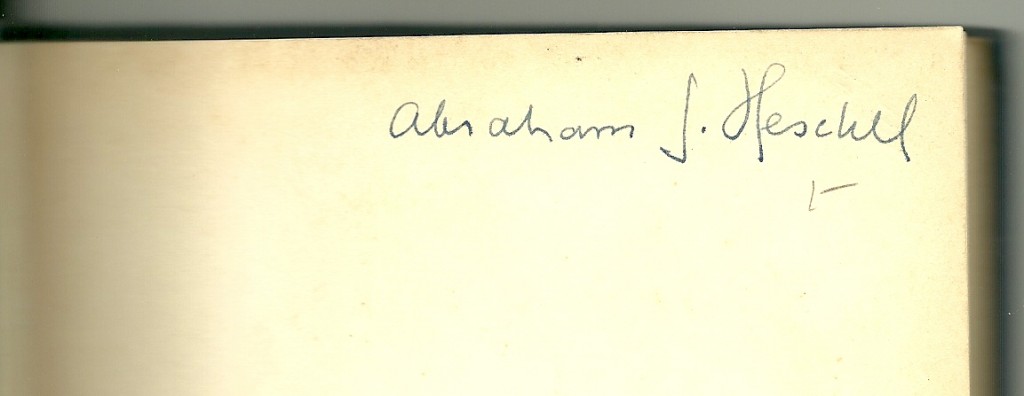 Abraham J. Heschel